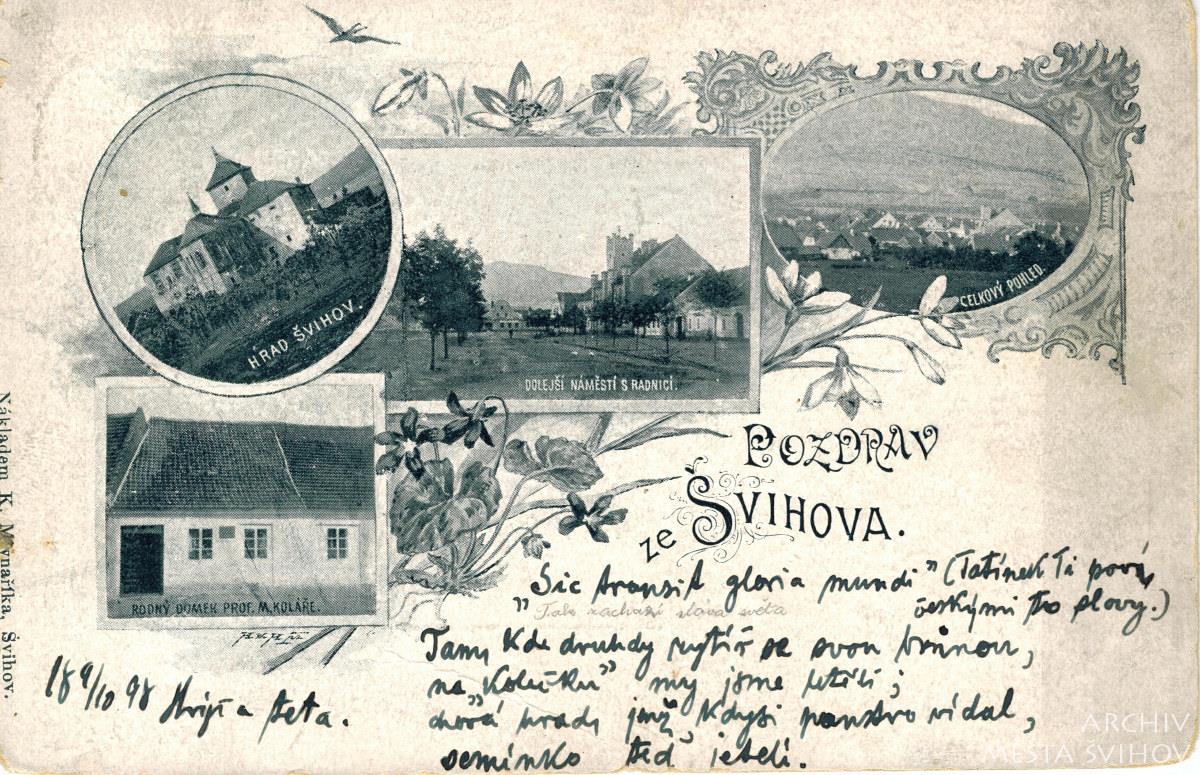 HRAD ŠVIHOV.
DOLEJŠÍ NÁMĚSTÍ S RADNICÍ.
CELKOVÝ POHLED.
RODNÝ DOMEK PROF. M. KOLÁŘE.
Nákladem K. Mlynaříka, Švihov.
POZDRAV
ze ŠVIHOVA.
"Sic transit gloria mundi" (Tatínek Ti poví,
českými to slovy.)
Tak zachází sláva světa
Tam, kde druhdy rytíř se svou
na "Kolečku" my jsme letěli;
hradu, jenž kdysi panstvo vídal,
semínko teď jeteli.
18 9/10 98 Strýc a teta.
ARCHIV
MĚSTA ŠVIHOV